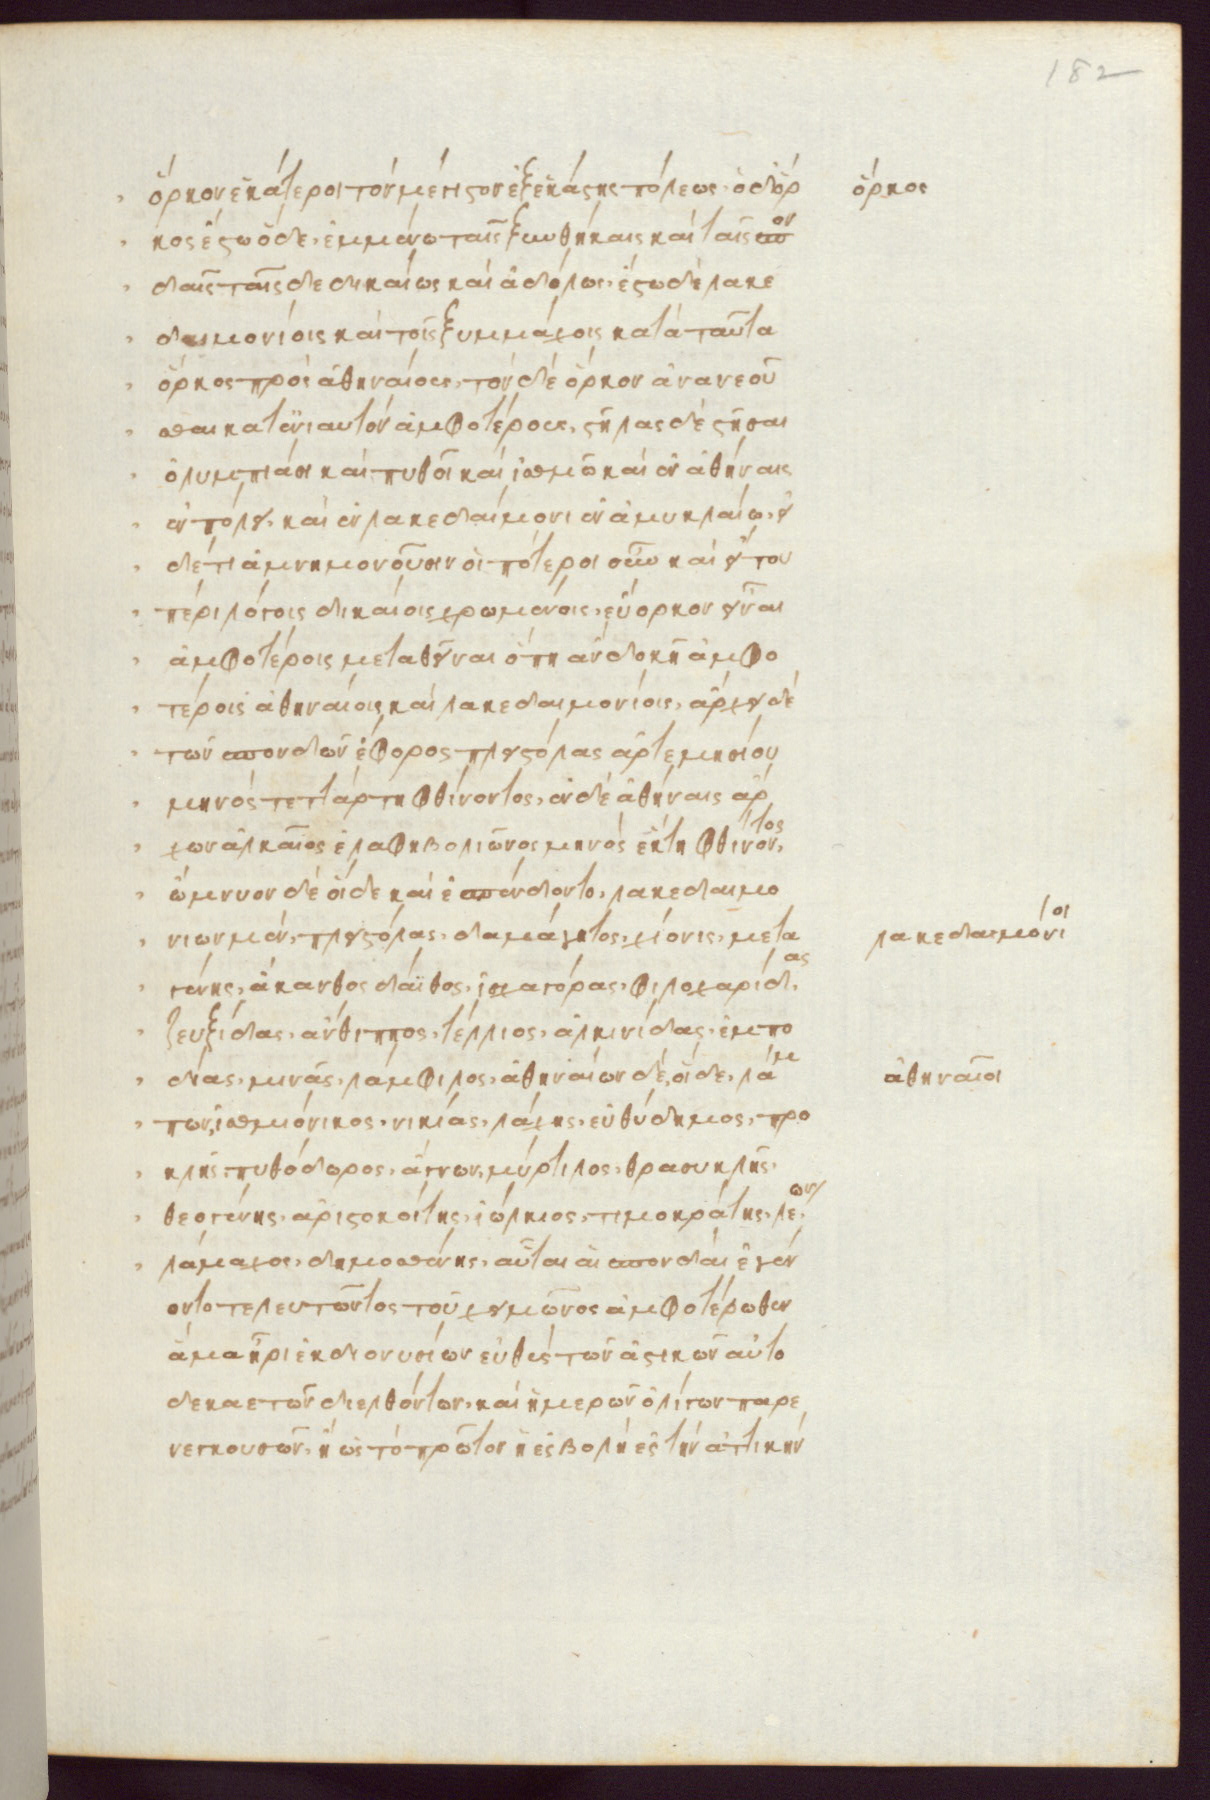 182
ὅρκον ἑκάτεροι τὸν μέγιστον ἐξ ἑκάστης πόλεως· ὁ δ' ὅρ
ὅρκος
κος ἔστω ὅδε· ἐμμενῶ ταῖς ξυνθήκαις καὶ ταῖς σπον
δαῖς ταῖσδε δικαίως καὶ ἀδόλως· ἔστω δὲ λακε
δαιμονίοις καὶ τοῖς ξυμμάχοις κατὰ ταῦτα
ὅρκος πρὸς ἀθηναίους· τὸν δὲ ὅρκον ἀνανεοῦ
σθαι κατ' ἐνιαυτὸν ἀμφοτέρους· στήλας δὲ στῆσαι
ὀλυμπιάσι καὶ πυθοῖ καὶ ἰσθμῶ καὶ ἐν ἀθήναις
ἐν πόλει· καὶ ἐν λακεδαίμονι ἐν ἀμυκλαίω· εἰ
δέ τι ἀμνημονοῦσιν ὁπότεροι οὖν καὶ εἴ του
πέρι λόγοις δικαίοις χρωμένοις· εὔορκον εἶναι
ἀμφοτέροις μεταθεῖναι ὅπη ἂν δοκῆ ἀμφο
τέροις ἀθηναίοις καὶ λακεδαιμονίοις· ἄρχει δὲ
τῶν σπονδῶν ἔφορος πλειστόλας ἀρτεμισίου
μηνὸς τετάρτη φθίνοντος· ἐν δὲ ἀθήναις ἄρ
χων ἀλκαῖος ἐλαφηβολιῶνος μηνὸς ἕκτη φθίνοντος·
ὤμνυον δὲ οἵδε καὶ ἐσπένδοντο· λακεδαιμο
νίων μὲν· πλειστόλας· δαμάγητος· χίονις· μετα
λακεδαιμόνιοι
γένης· ἄκανθος δάϊθος· ἰσχαγόρας· φιλοχαρίδας·
ζευξίδας· ἄνθιππος· τέλλιος· ἀλκινίδας· ἐμπε
δίας· μηνᾶς· λάμφιλος· ἀθηναίων δὲ, οἵδε· λάμ
ἀθηναῖοι
πων, ἰσθμιόνικος· νικίας· λάχης· εὐθύδημος· προ
κλῆς· πυθόδωρος· ἅγνων, μύρτιλος· θρασυκλῆς·
θεογένης· ἀριστοκοίτης· ἰώλκιος· τιμοκράτης· λέων·
λάμαχος· δημοσθένης· αὗται αἱ σπονδαὶ ἐγέν
οντο τελευτῶντος τοῦ χειμῶνος ἀμφοτέρωθεν
ἅμα ἦρι ἐκ διονυσίων εὐθὺς τῶν ἀστικῶν αὐτο
δεκαετῶν διελθόντων· καὶ ἡμερῶν ὀλίγων παρε
νεγκουσῶν· ἢ ὡς τὸ πρῶτον ἡ ἐσβολὴ ἐς τὴν ἀττικὴν